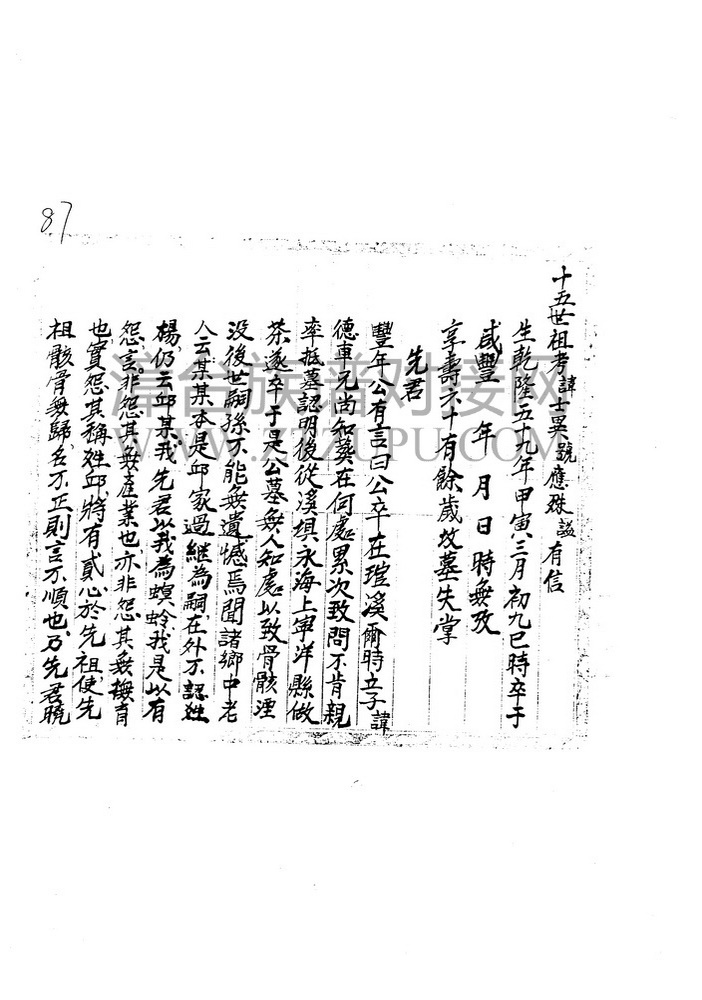 87
十五世祖考諱士㚑號應殊謚有信
生乾隆五十九年甲寅八三月初九巳時卒于
咸豐 年 月 日 時無攷
享壽六十有餘歲坟墓失掌
先君
豐年公有言曰公卒在瑄溪爾時立子諱
德車兄尚知葬在何處累次致問不肯親
率抵墓認明後從溪埧永海上寜洋縣做
茶遂卒于是公墓無人知處以致骨骸湮
没後世嗣孫不能無遺憾焉聞諸鄉中老
人云某某本是邱家過継為嗣在外不認姓
楊仍云邱某我先君以我為螟蛉我是以有
怨言非怨其無產業也亦非怨其無撫育
也實怨其稱姓邱將有貳心於先祖使先
祖骸骨無歸名不正則言不順也乃先君曉
漳台族谱对接网
WWW.ZTZUPU.COM